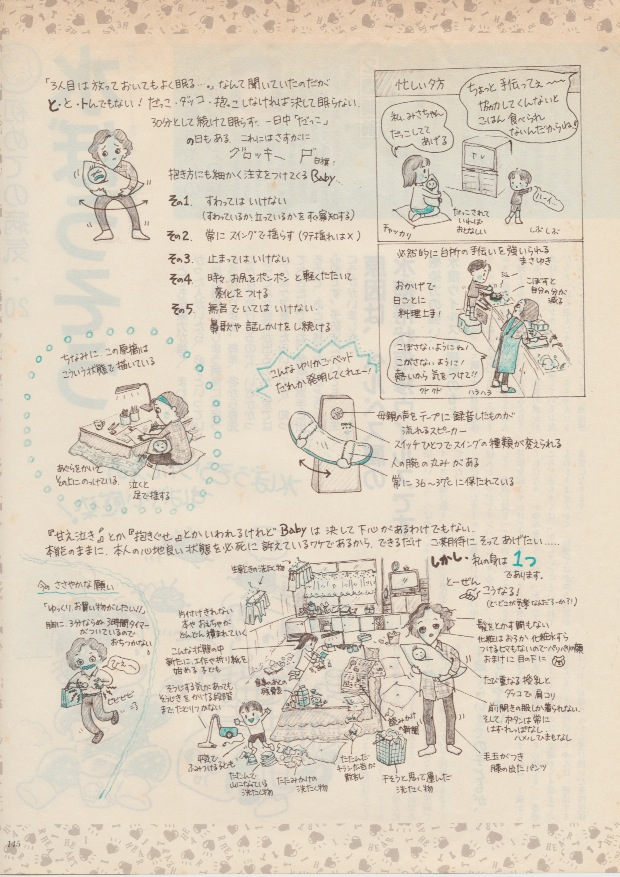 「3人目は放っておいてもよく眠る…。」なんて聞いていたのだが
と・と・トんでもない！だっこ・ダッコ・抱っこしなければ決して眠らない。
30分として続けて眠らず、一日中「だっこ」
の日もある。これにはさすがに
グロッキー
抱き方にも細かく注文をつけてくるBaby.
その1. すわってはいけない
(すわっているか立っているかをすぐ察知する)
その2. 常にスイングで揺らす(タテ揺れは×)
その3. 止まってはいけない
その4. 時々お尻をポンポンと軽くたたいて
変化をつける
その5. 無言でいてはいけない。
鼻歌や話しかけをし続ける
忙しい夕方
ちょっと手伝ってェ〜
協力してくんないと
ごはん食べられ
ないんだからね!
私、みさちゃん
だっこしてて
あげる
TV
ハーイ…
チャッカリ
だっこされて
いれば
おとなしい
しぶしぶ
必然的に台所の手伝いを強いられる
まさゆき
おかげで
日ごとに
料理上手!
こぼすと
自分の分が
減る
こぼさないようにね!
こがさないように!
熱いから気をつけて!!
ハラハラ
ちなみに、この原稿は
こういう状態で描いている
あぐらをかいて
その上にのっけている
泣くと
足で揺する
こんなゆりかごベッド
だれか発明してくれェー!
母親の声をテープに録音したものが
流れるスピーカー
スイッチひとつでスイングの種類が変えられる
人の腕の丸みがある
常に36〜37℃に保たれている
『甘え泣き』とか『抱きぐせ』とかいわれるけれどBabyは決して下心があるわけでもない。
本能のままに、本人の心地良い状態を必死に訴えているワケであるから、できるだけ ご期待にそってあげたい……
しかし・私の身は1つ
であります。
とーぜん
こうなる!
今のささやかな願い
「ゆっくりお買い物がしたい!!」
胸に、3分ならぬ3時間タイマー
がついているので
おちつかない
ピピピピ
生乾きの洗たく物
片付けきれない
本やおもちゃが
どんどん積まれていく
こんな状態の中
新たに、工作や折り紙を
始める子ども
そうじする気があっても
そうじきをかける段階
までたどりつかない
平気で
ふみつける子ども
たたんで
山になっている
洗たく物
たたみかけの
洗たく物
読みかけ
の新聞
干そうと思って運んだ
洗たく物
髪をとかす間もない
化粧はおろか化粧水すら
つけるヒマもないのでパリパリの顔
おまけに目の下に
たび重なる授乳と
ダッコで肩コリ
前開きの服しか着られない。
そしてボタンは常に
はずれっぱなし
ハメルひまもなし
毛玉がつき
膝の出たパンツ
145